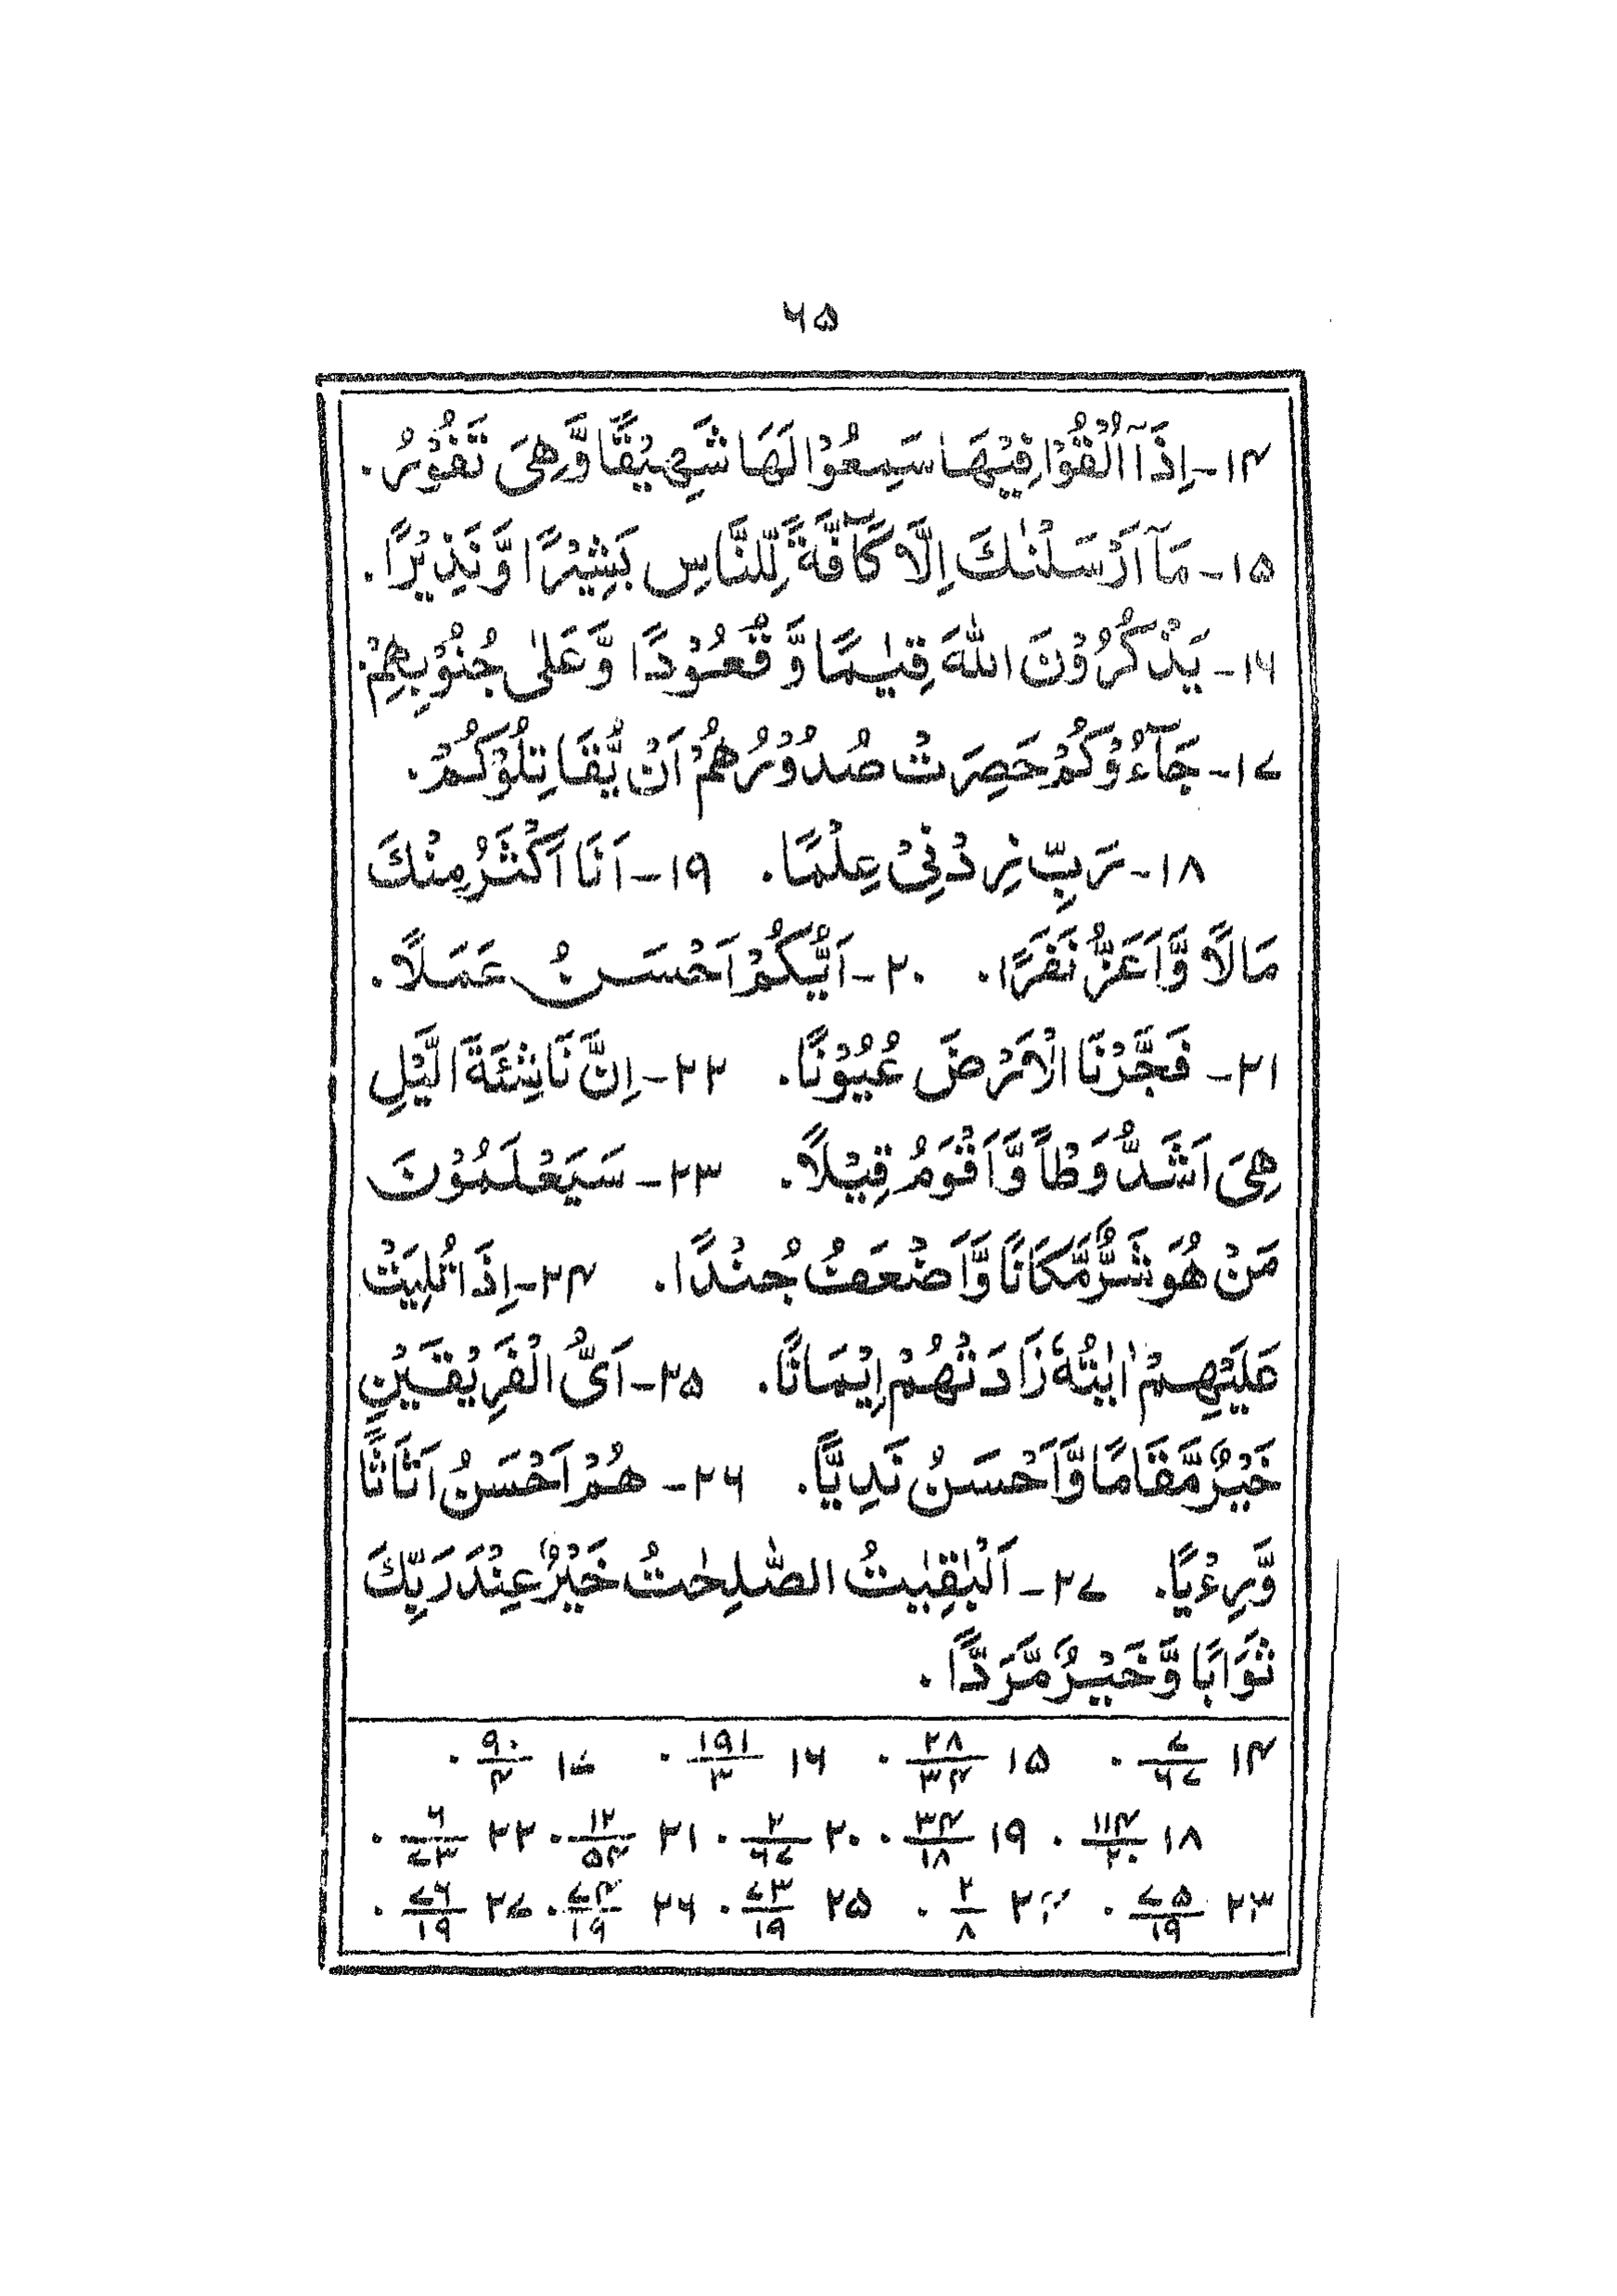 ۶۵
۱۴- اِذَآ اُلْقُوْا فِيْهَا سَمِعُوْا لَهَا شَهِيْقًا وَّهِىَ تَفُوْرُ.
۱۵- مَآ اَرْسَلْنٰكَ اِلَّا كَآفَّةً لِّلنَّاسِ بَشِيْرًا وَّنَذِيْرًا.
۱۶- يَذْكُرُوْنَ اللّٰهَ قِيٰمًا وَّ قُعُوْدًا وَّ عَلٰى جُنُوْبِهِمْ.
۱۷- جَآءُوْكُمْ حَصِرَتْ صُدُوْرُهُمْ اَنْ يُّقَاتِلُوْكُمْ.
۱۸- رَبِّ زِدْنِىْ عِلْمًا. ۱۹- اَنَا اَكْثَرُ مِنْكَ
مَالًا وَّاَعَزُّ نَفَرًا. ۲۰- اَيُّكُمْ اَحْسَنُ عَمَلًا.
۲۱- فَجَّرْنَا الْاَرْضَ عُيُوْنًا. ۲۲- اِنَّ نَاشِئَةَ الَّيْلِ
هِىَ اَشَدُّ وَطْأً وَّاَقْوَمُ قِيْلًا. ۲۳- سَيَعْلَمُوْنَ
مَنْ هُوَ شَرٌّ مَّكَانًا وَّاَضْعَفُ جُنْدًا. ۲۴- اِذَا تُلِيَتْ
عَلَيْهِمْ اٰيٰتُهٗ زَادَتْهُمْ اِيْمَانًا. ۲۵- اَىُّ الْفَرِيْقَيْنِ
خَيْرٌ مَّقَامًا وَّاَحْسَنُ نَدِيًّا. ۲۶- هُمْ اَحْسَنُ اَثَاثًا
وَّرِءْيًا. ۲۷- اَلْبٰقِيٰتُ الصّٰلِحٰتُ خَيْرٌ عِنْدَ رَبِّكَ
ثَوَابًا وَّخَيْرٌ مَّرَدًّا.
۱۴ ۷/۶۷ . ۱۵ ۲۸/۳۴ . ۱۶ ۱۹۱/۳ . ۱۷ ۹۰/۴ .
۱۸ ۱۱۴/۲۰ . ۱۹ ۳۴/۱۸ . ۲۰ ۲/۶۷ . ۲۱ ۱۲/۵۴ . ۲۲ ۶/۷۳ .
۲۳ ۷۵/۱۹ . ۲۴ ۲/۸ . ۲۵ ۷۳/۱۹ . ۲۶ ۷۴/۱۹ . ۲۷ ۷۶/۱۹ .